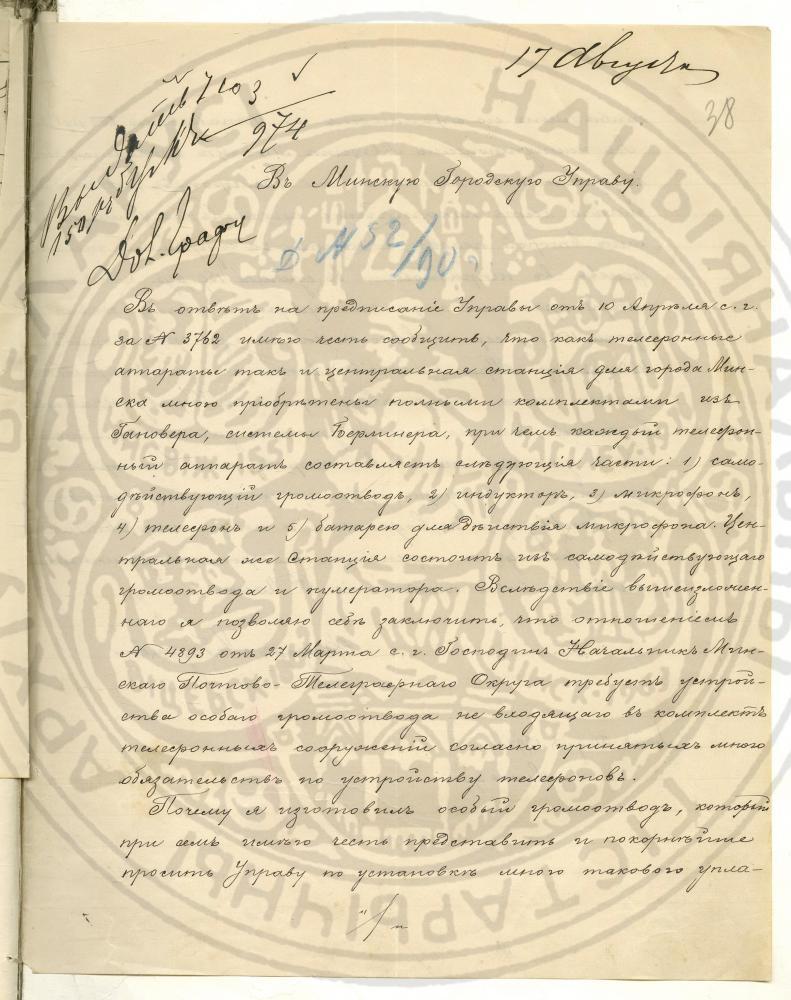 17 Августа
38
7103
974
Въ Минскую Городскую Управу.
№ 52/90
Въ отвѣтъ на предписаніе Управы отъ 10 Апрѣля с. г.
за № 3762 имѣю честь сообщить, что какъ телефонные
аппараты такъ и центральная станція для города Мин-
ска мною пріобрѣтены полными комплектами изъ
Гановера, системы Берлинера, при чемъ каждый телефон-
ный аппаратъ составляетъ слѣдующія части: 1) само-
дѣйствующій громоотводъ, 2) индукторъ, 3) микрофонъ,
4) телефонъ и 5) батарею для дѣйствія микрофона. Цен-
тральная же Станція состоитъ изъ самодѣйствующаго
громоотвода и нумератора. Вслѣдствіе вышеизложен-
наго я позволяю себѣ заключить, что отношеніемъ
№ 4893 отъ 27 Марта с. г. Господинъ Начальникъ Мин-
скаго Почтово-Телеграфнаго Округа требуетъ устрой-
ства особаго громоотвода не входящаго въ комплектъ
телефонныхъ сооруженій согласно принятыхъ мною
обязательствъ по устройству телефоновъ.
Почему я изготовилъ особый громоотводъ, который
при семъ имѣю честь представить и покорнѣйше
просить Управу по установкѣ мною таковаго упла-